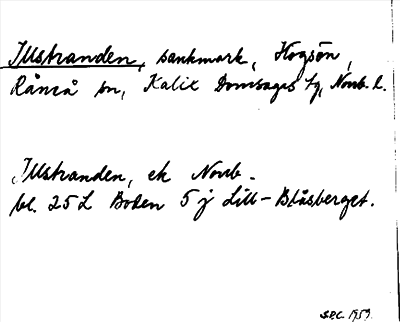 Illstranden, sankmark, Högsön,
Råneå sn, Kalix Domsagas tg, Norrb. l.
Illstranden, ek Norrb.
bl. 25 L Boden 5 j Lill-Blåsberget.
S.P.C. 1959.